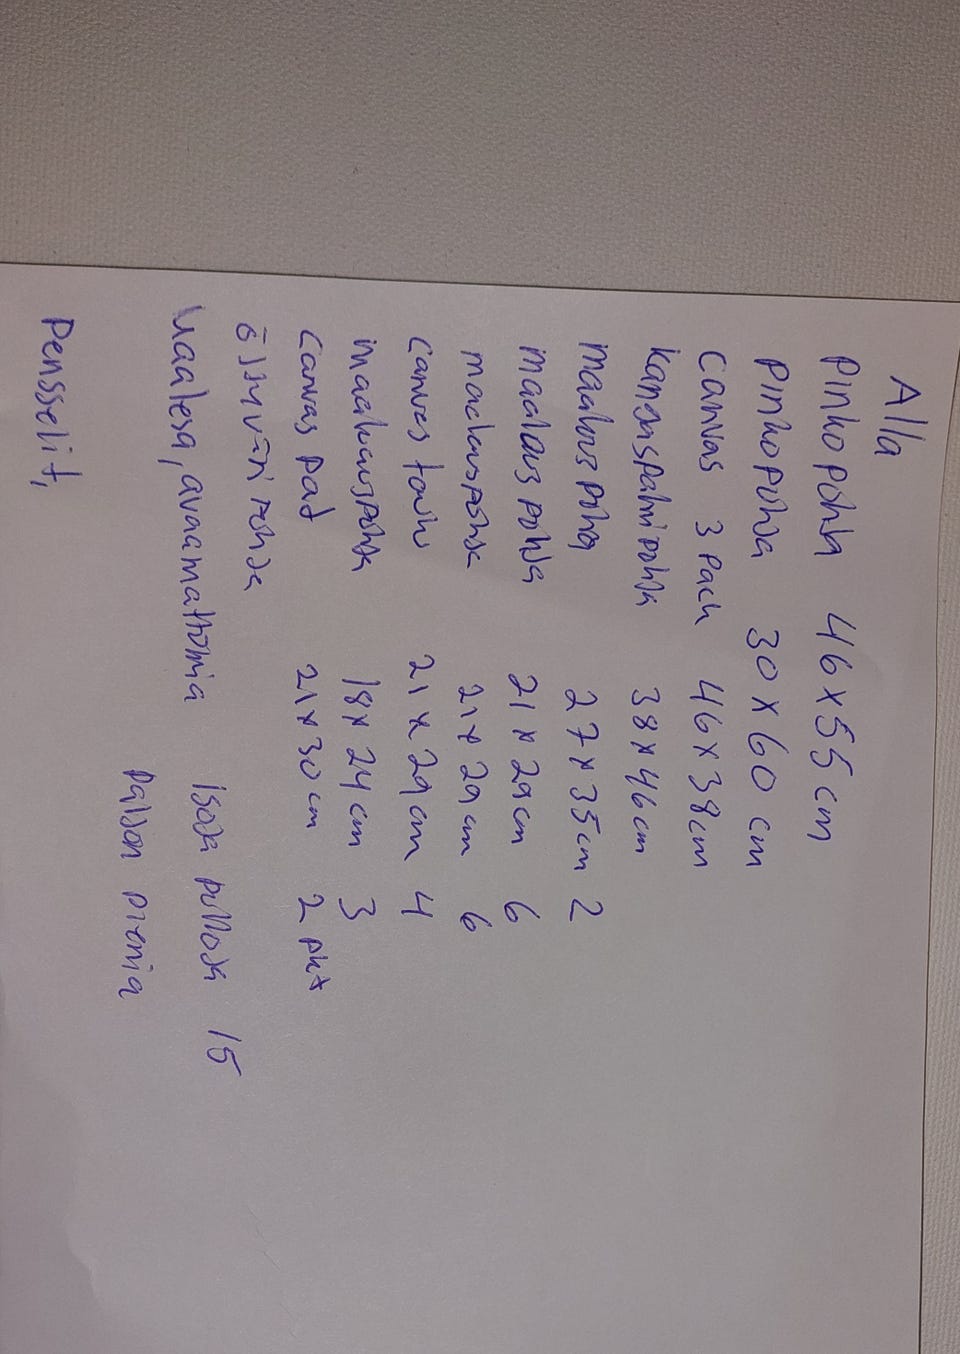 Alla
Pinkopohja 46x55cm
Pinkopohja 30x60cm
Canvas 3 Pack 46x38cm
kangaspahvipohja 38x46cm
maalauspohja 27x35cm 2
maalauspohja 21x29cm 6
maalauspohja 21x29cm 6
canvas taulu 21x29cm 4
maalauspohja 18x24cm 3
Canvas pad 21x30cm 2 pkt
öljyväripohja
Maaleja, avaamattomia Isoja pulloja 15
Paljon pieniä
Pensselit,